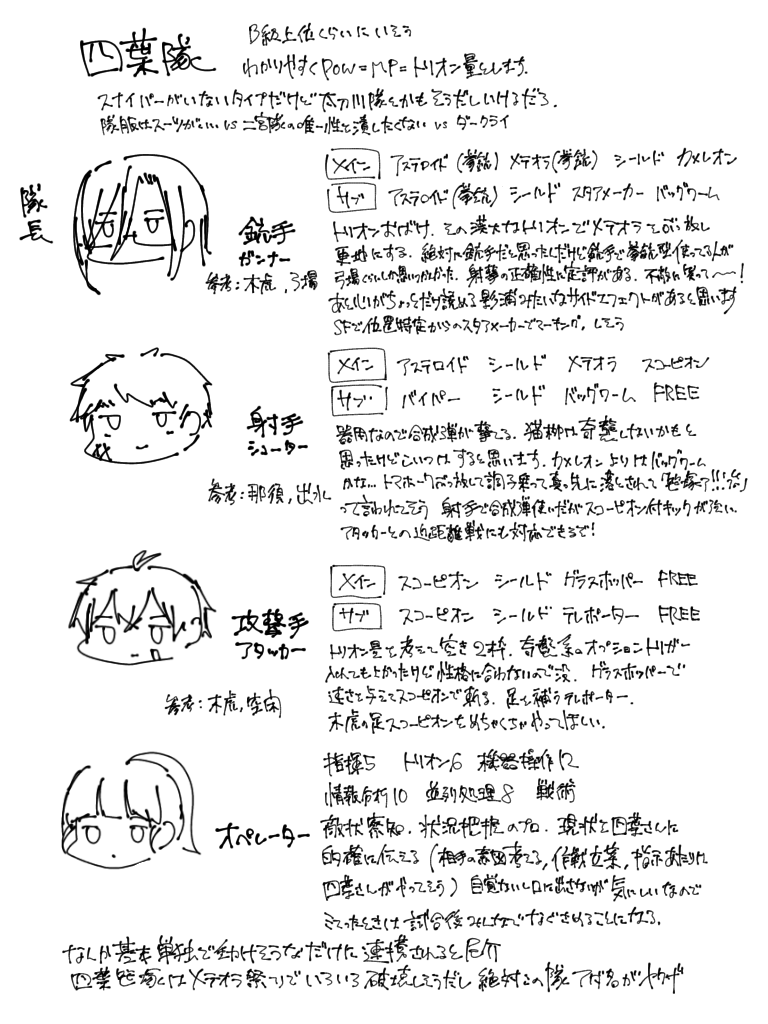 四葉隊
B級上位くらいにいそう
わかりやすくPOW=MP=トリオン量とします。
スナイパーがいないタイプだけど太刀川隊とかもそうだしいけるだろ。
隊服はスーツがいい vs 二宮隊の唯一性を潰したくない vs ダークライ
隊長
銃手
ガンナー
参考:木虎,弓場
メイン アステロイド(拳銃) メテオラ(拳銃) シールド カメレオン
サブ アステロイド(拳銃) シールド スタアメーカー バッグワーム
トリオンおばけ。その漠大なトリオンでメテオラをぶっ放し
更地にする。絶対に銃手だと思ったんだけど銃手で拳銃型使ってる人が
弓場ぐらいしか思いつかなかった。射撃の正確性に定評がある。不敵に笑って〜!
あと心がちょっとだけ読める影浦みたいなサイドエフェクトがあると思います
SEで位置特定からのスタアメーカーでマーキング。しそう
射手
シューター
参考:那須,出水
メイン アステロイド シールド メテオラ スコーピオン
サブ バイパー シールド バッグワーム FREE
器用なので合成弾が撃てる。猫柳は奇襲しないかもと
思ったけどこいつはすると思います。カメレオンよりはバッグワーム
かな… トマホークぶっ放して調子乗って真っ先に落とされて
って言われてそう 射手で合成弾使いだがスコーピオン付キックが強い。
アタッカーとの近距離戦にも対応できるで!
攻撃手
アタッカー
参考:木虎,空閑
メイン スコーピオン シールド グラスホッパー FREE
サブ スコーピオン シールド テレポーター FREE
トリオン量を考えて空き2枠。奇襲系のオプショントリガー
入れても良かったけど性格に合わないので没。グラスホッパーで
速さを与えてスコーピオンで斬る。足を補うテレポーター。
木虎の足スコーピオンをめちゃくちゃやってほしい。
オペレーター
指揮5 トリオン6 機器操作12
情報分析10 並列処理8 戦術
敵状察知、状況把握のプロ。現状を四葉さんに
的確に伝える(相手の意図考える,作戦立案,指示あたりは
四葉さんがやってそう) 自覚ないし口に出さないが気にしいなので
ミスったときは試合後みんなでなぐさめることになる。
なんか基本単独で動けそうなだけに連携されると厄介
四葉 はメテオラ祭りでいろいろ破壊しそうだし 絶対この隊 あだ名がヤクザ